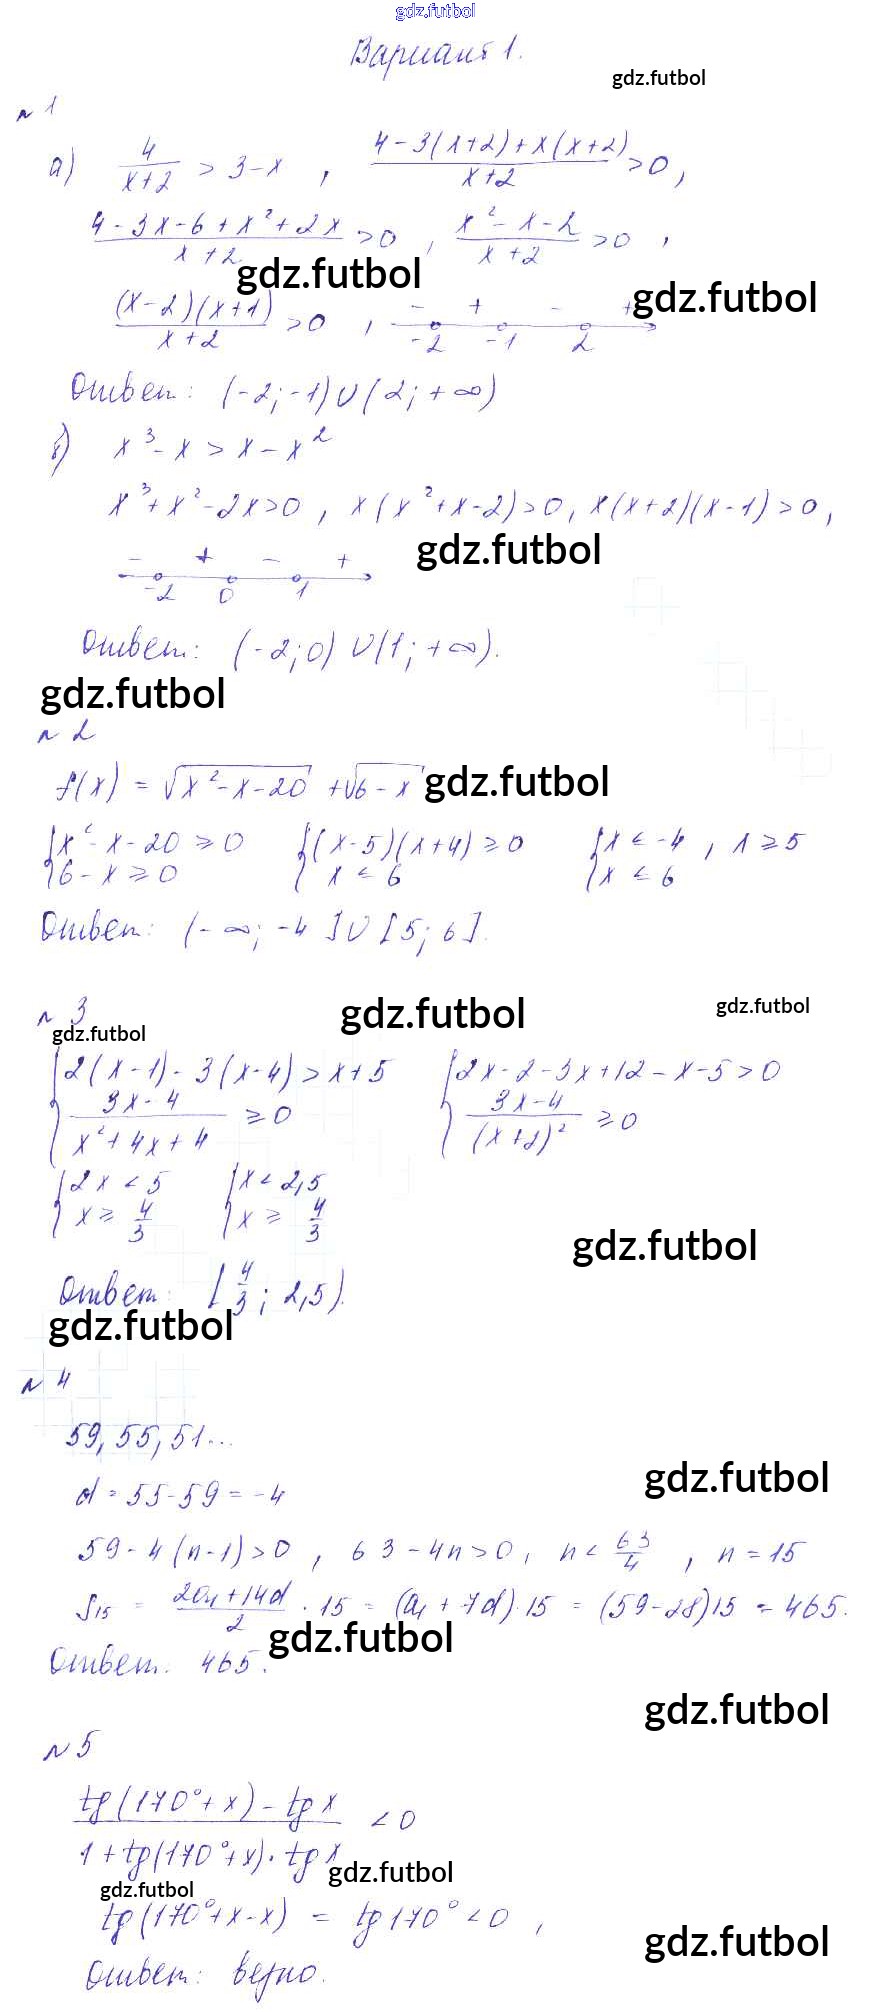 gdz.futbol
Вариант 1.
gdz.futbol
№ 1
а) 4/(x+2) > 3-x , (4-3(x+2)+x(x+2))/(x+2) > 0,
(4-3x-6+x²+2x)/(x+2) > 0 , (x²-x-2)/(x+2) > 0 ,
gdz.futbol gdz.futbol
((x-2)(x+1))/(x+2) > 0 , - + - +
-2 -1 2
Ответ: (-2;-1)∪(2;+∞)
б) x³-x > x-x²
x³+x²-2x>0 , x(x²+x-2)>0, x(x+2)(x-1)>0,
- + - + gdz.futbol
-2 0 1
Ответ: (-2;0)∪(1;+∞).
gdz.futbol
№ 2
f(x) = √(x²-x-20) + √(6-x) gdz.futbol
{x²-x-20 ≥ 0 {(x-5)(x+4) ≥ 0 {x ≤ -4 , x ≥ 5
6-x ≥ 0 x ≤ 6 x ≤ 6
Ответ: (-∞;-4]∪[5;6].
№ 3 gdz.futbol gdz.futbol
gdz.futbol
{2(x-1)-3(x-4) > x+5 {2x-2-3x+12-x-5 > 0
(3x-4)/(x²+4x+4) ≥ 0 (3x-4)/(x+2)² ≥ 0
{2x < 5 {x < 2,5
x ≥ 4/3 x ≥ 4/3
gdz.futbol
Ответ: [4/3; 2,5).
gdz.futbol
№ 4
59, 55, 51...
gdz.futbol
d = 55-59 = -4
59-4(n-1)>0 , 63-4n>0, n < 63/4 , n = 15
S₁₅ = (2a₁+14d)/2 · 15 = (a₁+7d)·15 = (59-28)15 = 465.
gdz.futbol
Ответ: 465.
gdz.futbol
№ 5
(tg(170°+x)-tg x)/(1+tg(170°+x)·tg x) < 0
gdz.futbol
gdz.futbol
tg(170°+x-x) = tg 170° < 0 ,
gdz.futbol
Ответ: верно.